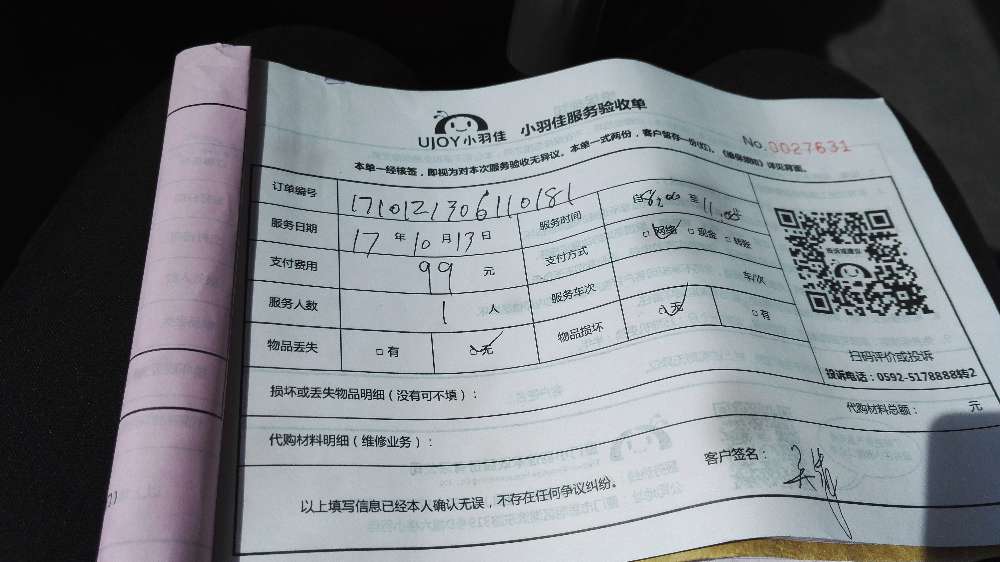 UJOY小羽佳 小羽佳服务验收单
No.0027631
本单一经核签，即视为对本次服务验收无异议。本单一式两份，客户留存一份(红)，《维保规则》详见背面。
订单编号 1710121306110181 服务时间 自8:00 至 11:00
服务日期 17 年 10 月 13 日 支付方式 □网络 □现金 □转账
支付费用 99 元 服务车次 车/次
服务人数 1 人 物品损坏 □无 □有
物品丢失 □有 □无
扫码评价或投诉
投诉电话：0592-5178888转2
损坏或丢失物品明细（没有可不填）：
代购材料总额： 元
代购材料明细（维修业务）：
客户签名：
以上填写信息已经本人确认无误，不存在任何争议纠纷。